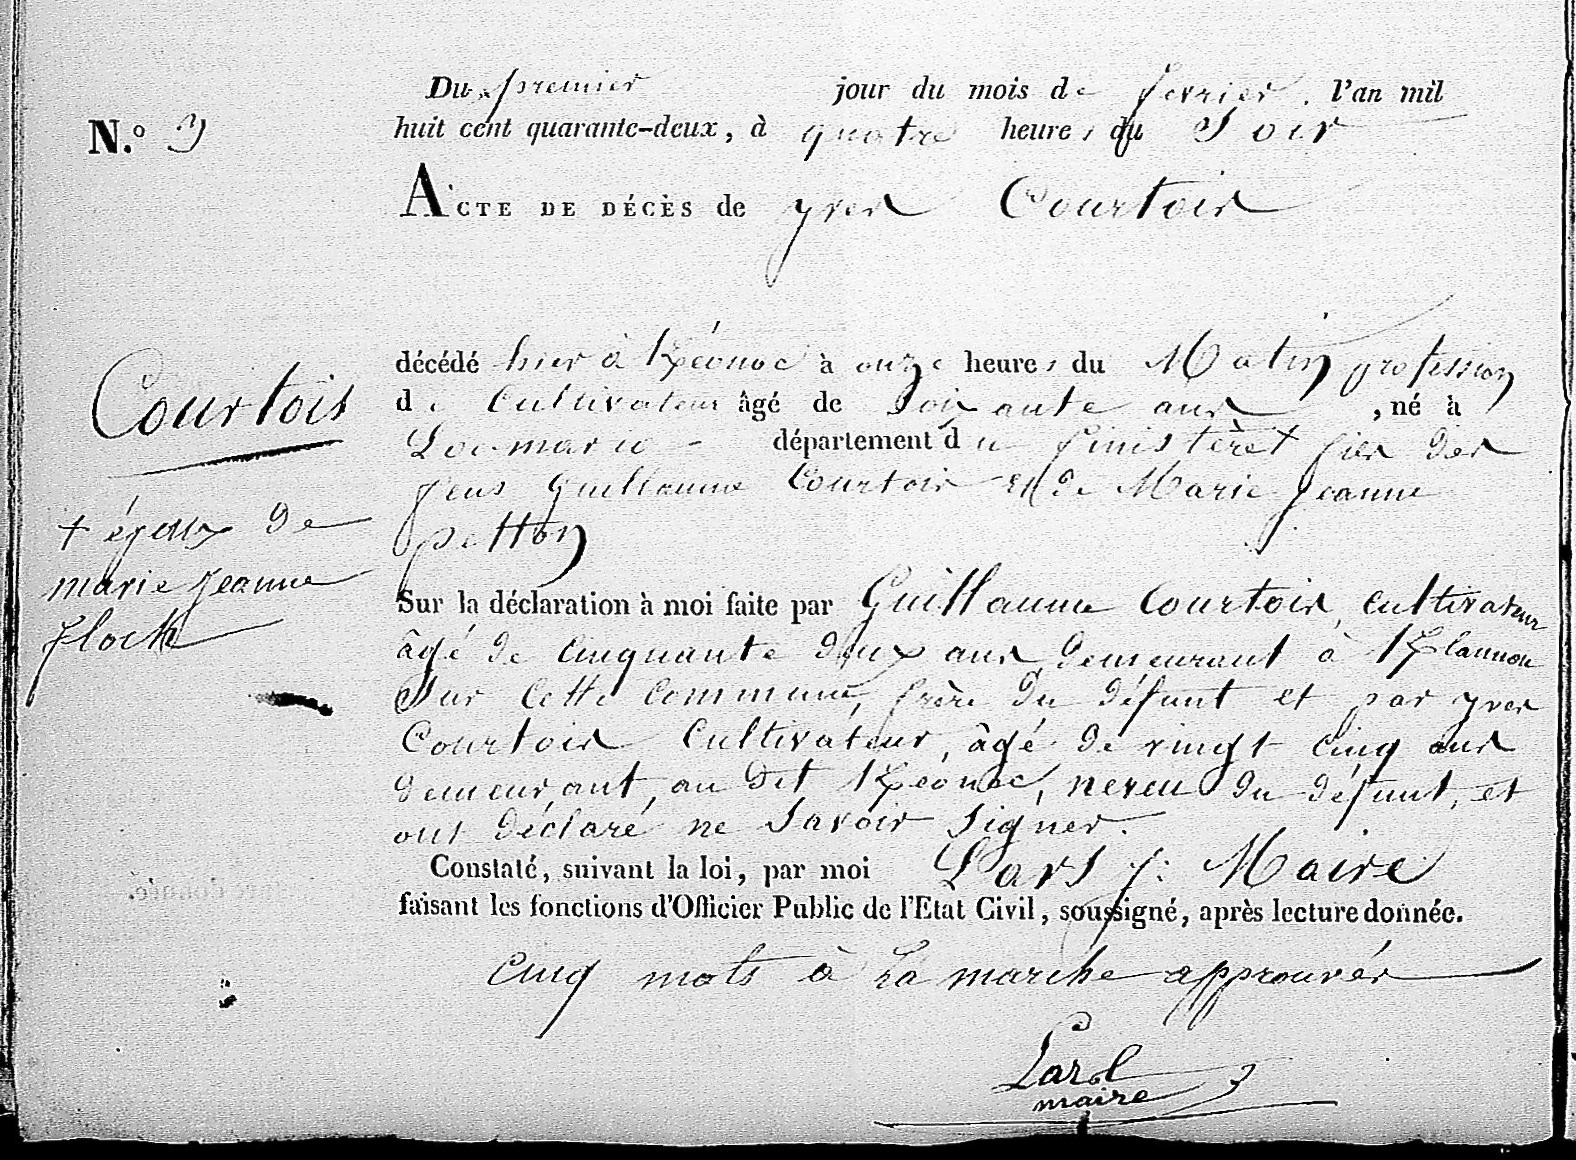 Du premier jour du mois de fevrier, l'an mil
N.º 3 huit cent quarante-deux, à quatre heures du Soir
ACTE DE DÉCÈS de yves Courtois
décédé hier à Kéonoc à onze heures du Matin profession
Courtois
de Cultivateur âgé de Soixante ans, né à
Loc-maria - département du finistère + fils des
feus guillaume Courtois et de Marie jeanne
petton
+ époux de
marie jeanne
floch
Sur la déclaration à moi faite par Guillaume Courtois, cultivateur
âgé de Cinquante deux ans demeurant à Klannou
Sur cette commune, frère du défunt et par yves
Courtois Cultivateur, âgé de vingt cinq ans
demeurant, au dit Kéonoc, neveu du défunt, et
ont déclaré ne Savoir Signer.
Constaté, suivant la loi, par moi Lars f: Maire
faisant les fonctions d'Officier Public de l'Etat Civil, soussigné, après lecture donnée.
Cinq mots à la marche approuvés
maire